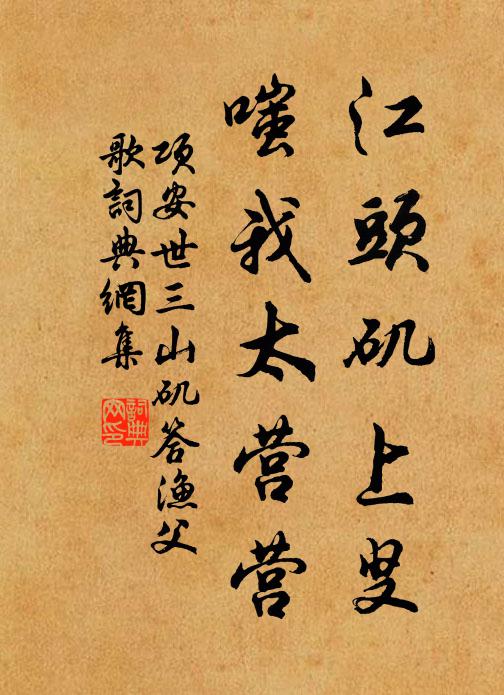 江頭矶上叟
嗤我太营营
項安世三山矶答漁父
歌詞典網集
詞典
网印